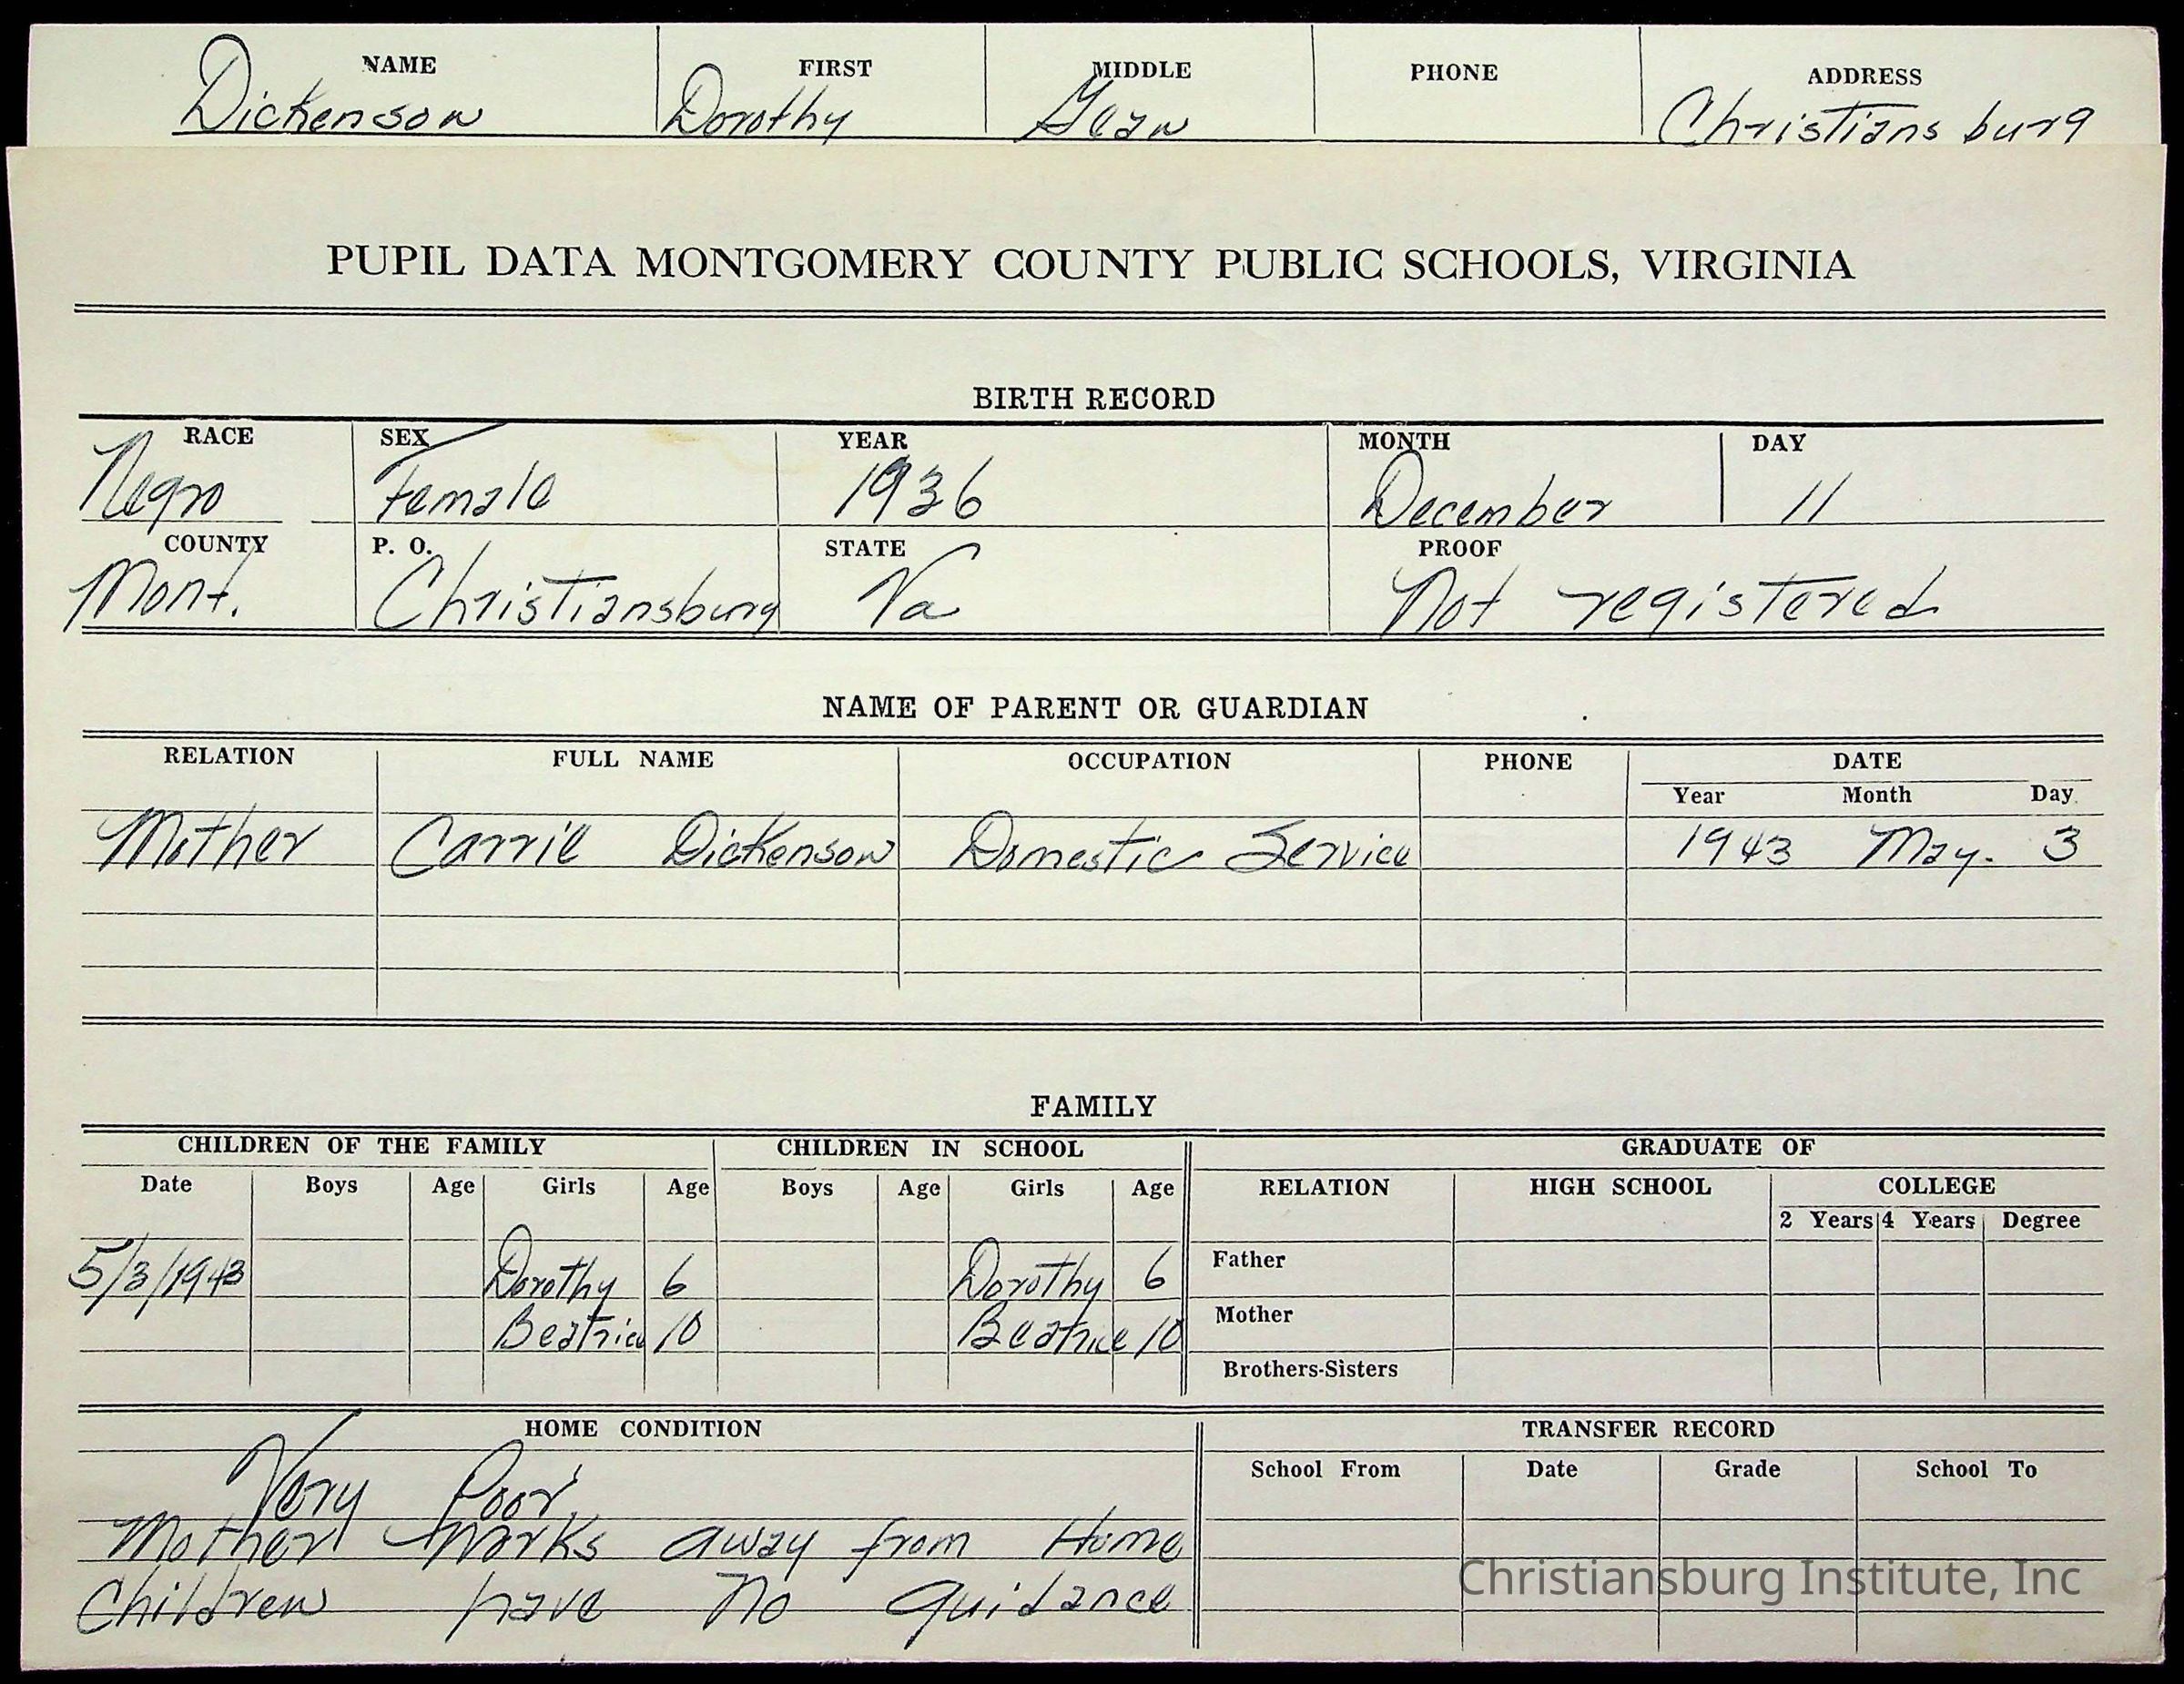 NAME FIRST MIDDLE PHONE ADDRESS
Dickenson Dorothy Gean Christiansburg
PUPIL DATA MONTGOMERY COUNTY PUBLIC SCHOOLS, VIRGINIA
BIRTH RECORD
RACE SEX YEAR MONTH DAY
Negro Female 1936 December 11
COUNTY P. O. STATE PROOF
Mont. Christiansburg Va Not registered
NAME OF PARENT OR GUARDIAN
RELATION FULL NAME OCCUPATION PHONE DATE
Year Month Day
Mother Carrie Dickenson Domestic Service 1943 May. 3
FAMILY
CHILDREN OF THE FAMILY CHILDREN IN SCHOOL GRADUATE OF
Date Boys Age Girls Age Boys Age Girls Age RELATION HIGH SCHOOL COLLEGE
2 Years 4 Years Degree
5/3/1943 Dorothy 6 Dorothy 6 Father
Beatrice 10 Beatrice 10 Mother
Brothers-Sisters
HOME CONDITION TRANSFER RECORD
School From Date Grade School To
Very Poor
Mother works away from Home
Children have no guidance
Christiansburg Institute, Inc